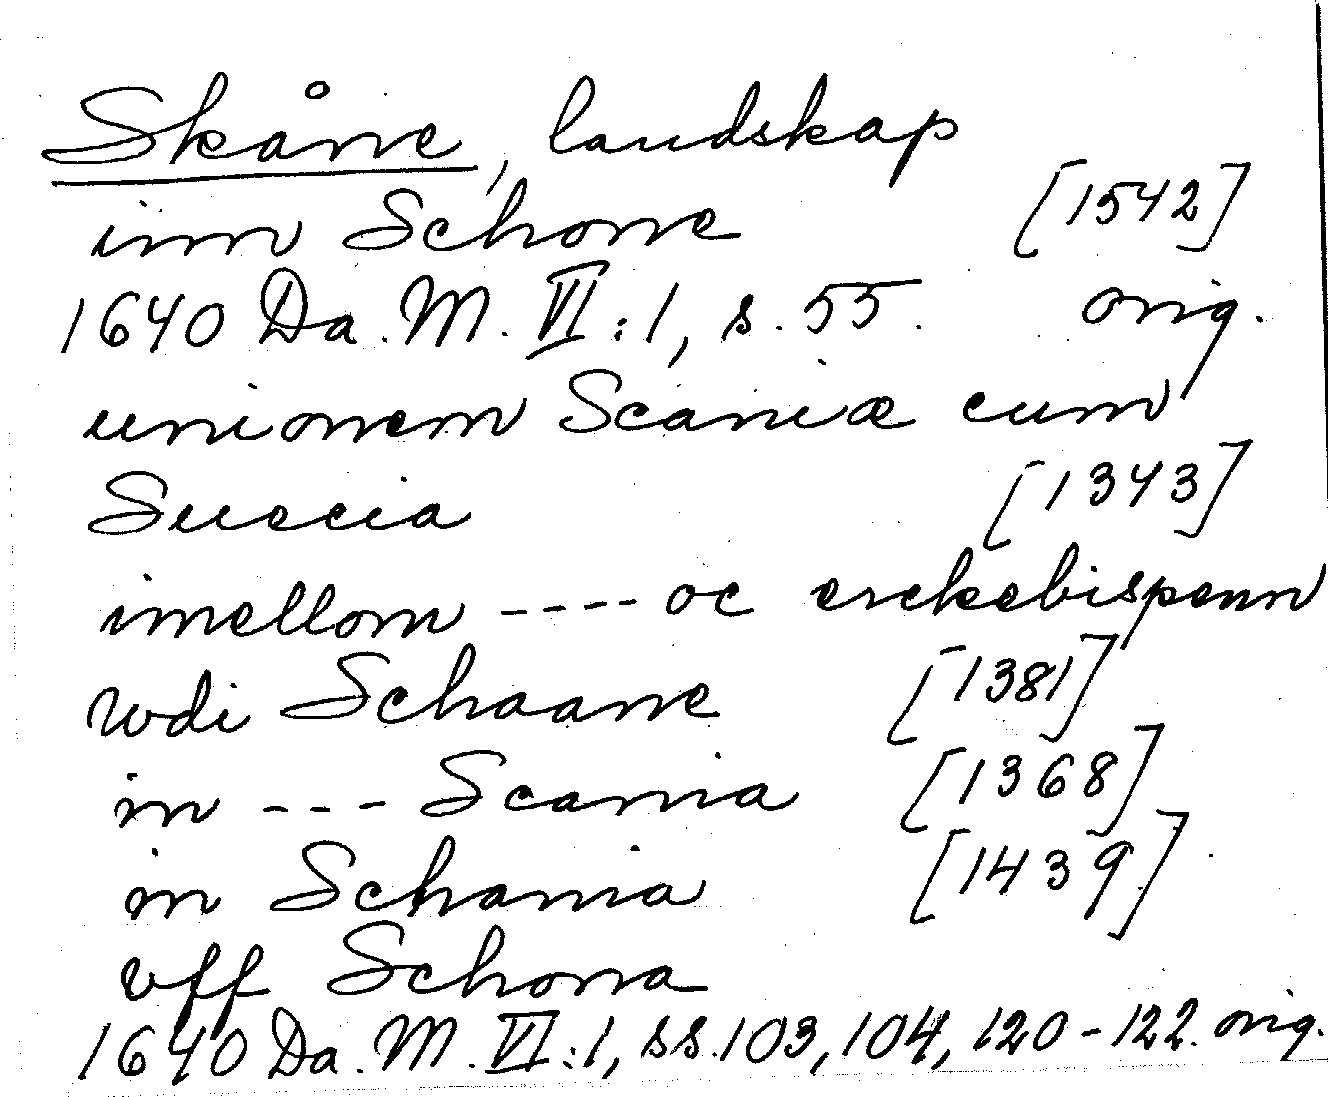 Skåne, landskap
inn Schone [1542]
1640 Da. M. VI:1, s. 55. orig.
unionem Scaniæ cum
Suecia [1343]
imellom ---- oc erckebispenn
wdi Schaane [1381]
in --- Scania [1368]
in Schania [1439]
vff Schona
1640 Da. M. VI:1, ss. 103, 104, 120-122. orig.